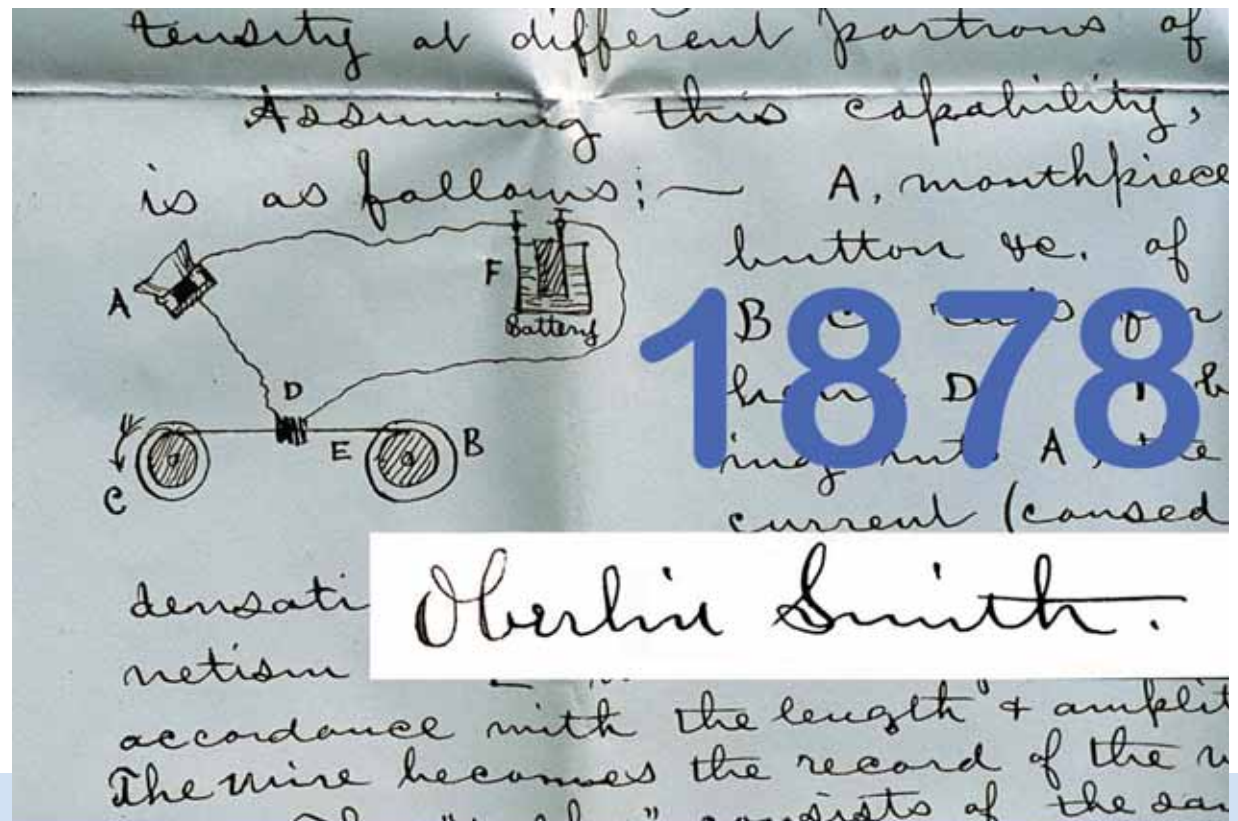 tensity at different portions of
Assuming this capability,
is as follows:— A, mouthpiece
button &c. of
A
F
Battery
1878
B C
D
E
B
C
D
ing into A, the
current (caused
densati
Oberlin Smith.
netism
accordance with the length & amplit
The wire becomes the record of the
consists of the sa